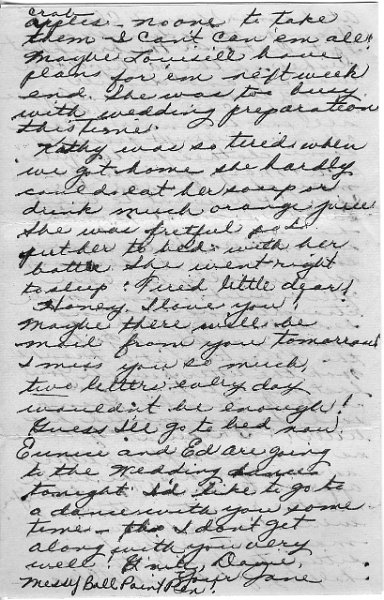 crab
apples - no one to take
them - I can't can 'em all!
Maybe Louisill have
plans for em next week
end. She was too busy
with wedding preparation
this time.
Kathy was so tired when
we got home she hardly
could eat her soup or
drink much orange juice
She was fretful so I
put her to bed with her
bottle She went right
to sleep! Tired little dear!
Honey, I love you!
Maybe there will be
mail from you tomorrow
I miss you so much,
two letters every day
wouldn't be enough!
Guess I'll go to bed now.
Eunice and Ed are going
to the Wedding dance
tonight. I'd like to go to
a dance with you some
time - tho I don't get
along with you very
well!
Your Jane
Messy Ball Point Pen!